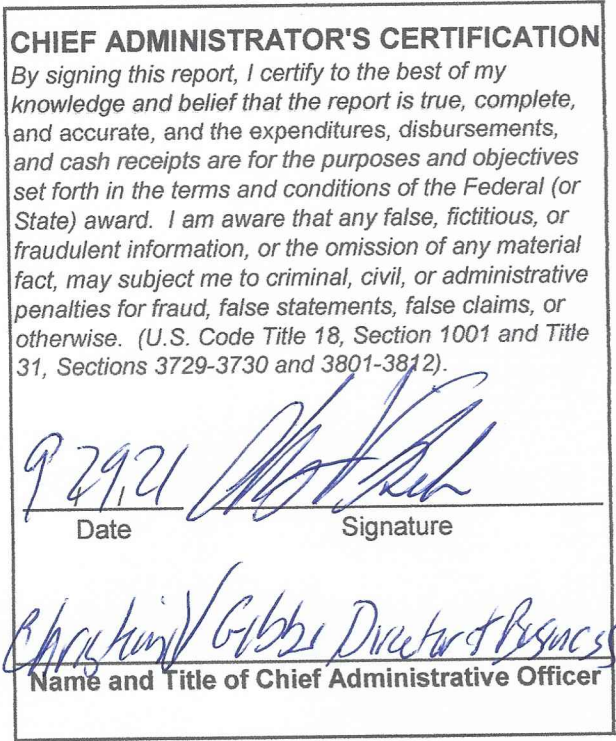 CHIEF ADMINISTRATOR'S CERTIFICATION
By signing this report, I certify to the best of my
knowledge and belief that the report is true, complete,
and accurate, and the expenditures, disbursements,
and cash receipts are for the purposes and objectives
set forth in the terms and conditions of the Federal (or
State) award.  I am aware that any false, fictitious, or
fraudulent information, or the omission of any material
fact, may subject me to criminal, civil, or administrative
penalties for fraud, false statements, false claims, or
otherwise.  (U.S. Code Title 18, Section 1001 and Title
31, Sections 3729-3730 and 3801-3812).
9 29.21
Date Signature
V Gibbs Director of Business
Name and Title of Chief Administrative Officer